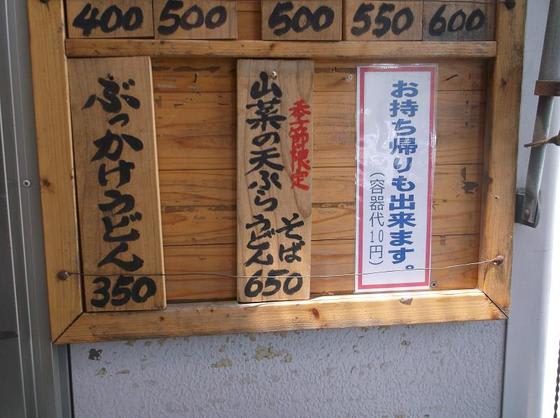 400
500
500
550
600
ぶっかけうどん
350
季節限定
山菜の天ぷらうどん
そば
650
お持ち帰りも出来ます。
(容器代10円)